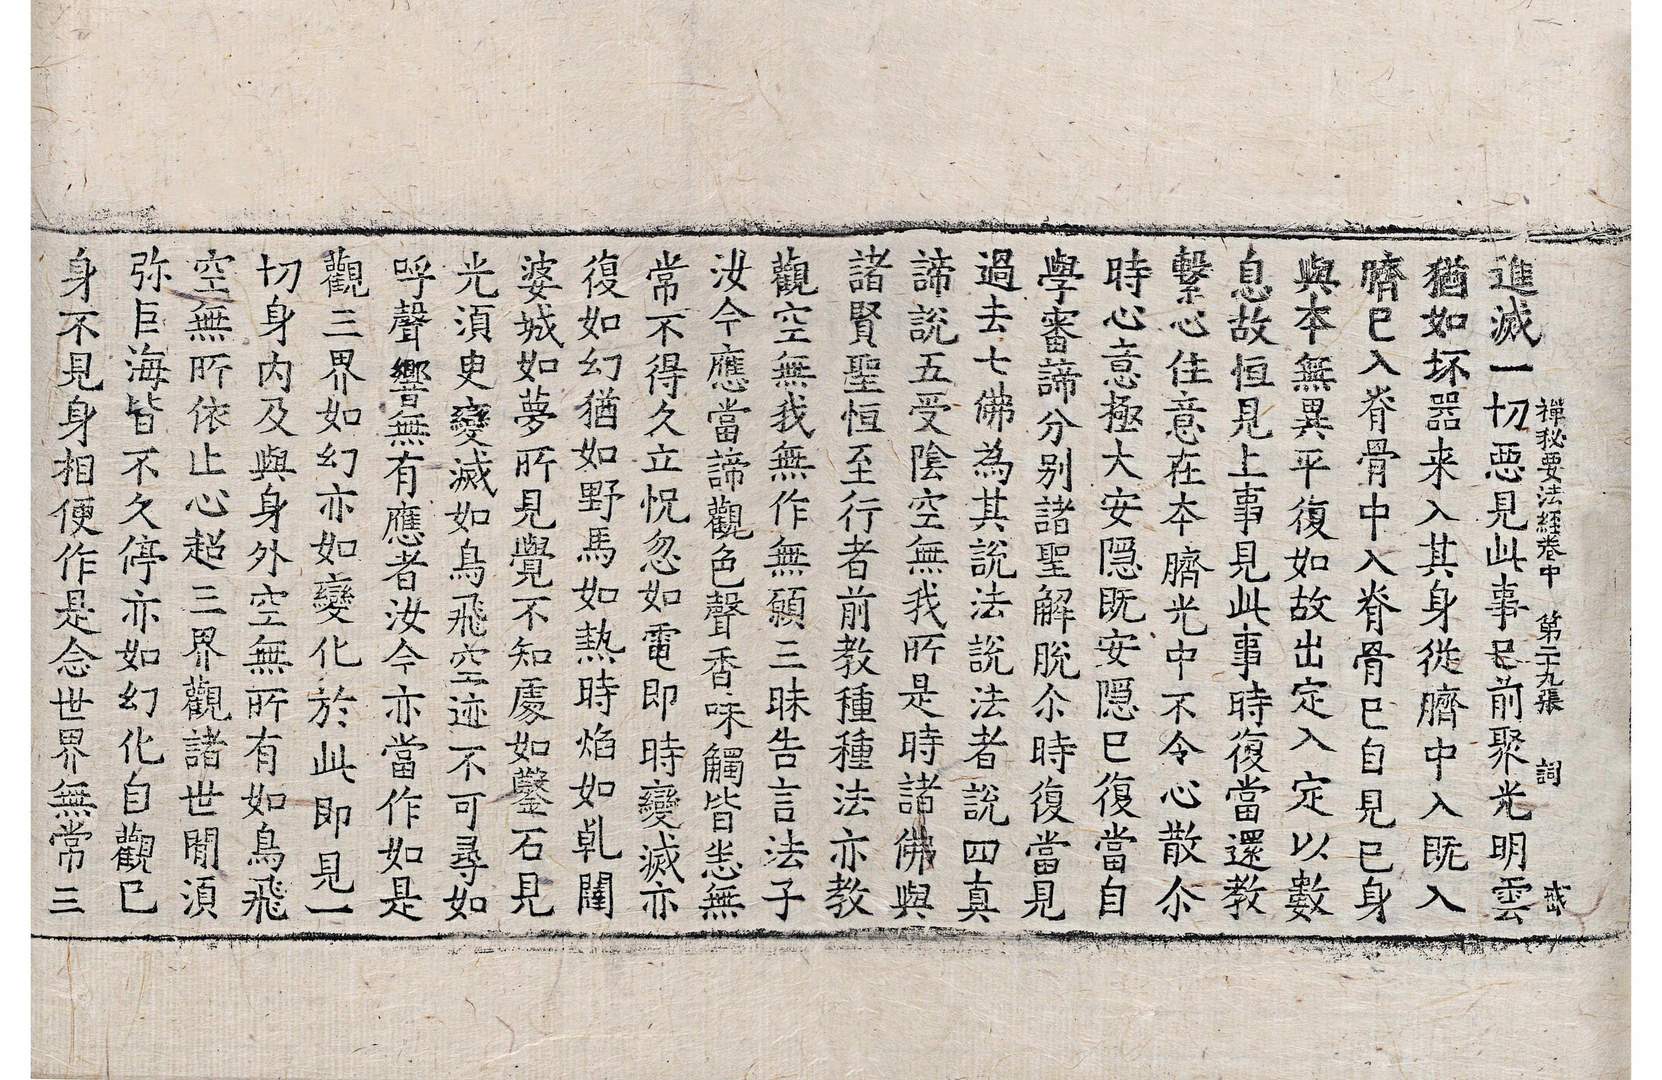 禪秘要法經卷中　第二十九張　詞
進滅一切惡見此事已前聚光明雲
猶如坏器来入其身從臍中入既入
臍已入脊骨中入脊骨已自見已身
與本無異平復如故出定入定以數
息故恒見上事見此事時復當還教
繫心住意在本臍光中不令心散尒
時心意極大安隱既安隱已復當自
學審諦分別諸聖解脫尒時復當見
過去七佛為其說法說法者說四真
諦說五受陰空無我所是時諸佛與
諸賢聖恒至行者前教種種法亦教
觀空無我無作無願三昧告言法子
汝今應當諦觀色聲香味觸皆悉無
常不得久立怳忽如電即時變滅亦
復如幻猶如野馬如熱時焰如乹闥
婆城如夢所見覺不知處如鑿石見
光須臾變滅如鳥飛空迹不可尋如
呼聲響無有應者汝今亦當作如是
觀三界如幻亦如變化於此即見一
切身内及與身外空無所有如鳥飛
空無所依止心超三界觀諸世閒須
弥巨海皆不久停亦如幻化自觀已
身不見身相便作是念世界無常三